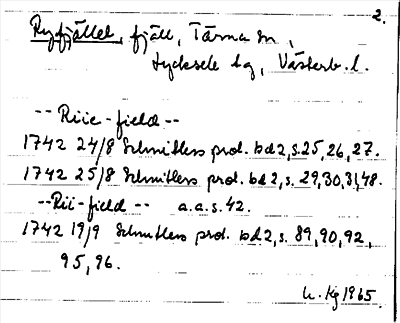 2.
Ryfjället, fjäll, Tärna sn,
Lycksele lg, Västerb. l.
-- Riie-field --
1742 24/8 Schnitlers prot. bd 2, s. 25, 26, 27.
1742 25/8 Schnitlers prot. bd 2, s. 29, 30, 31, 48.
-- Rii-field -- a.a. s. 42.
1742 19/9 Schnitlers prot. bd 2, s. 89, 90, 92,
95, 96.
U. Kg 1965.